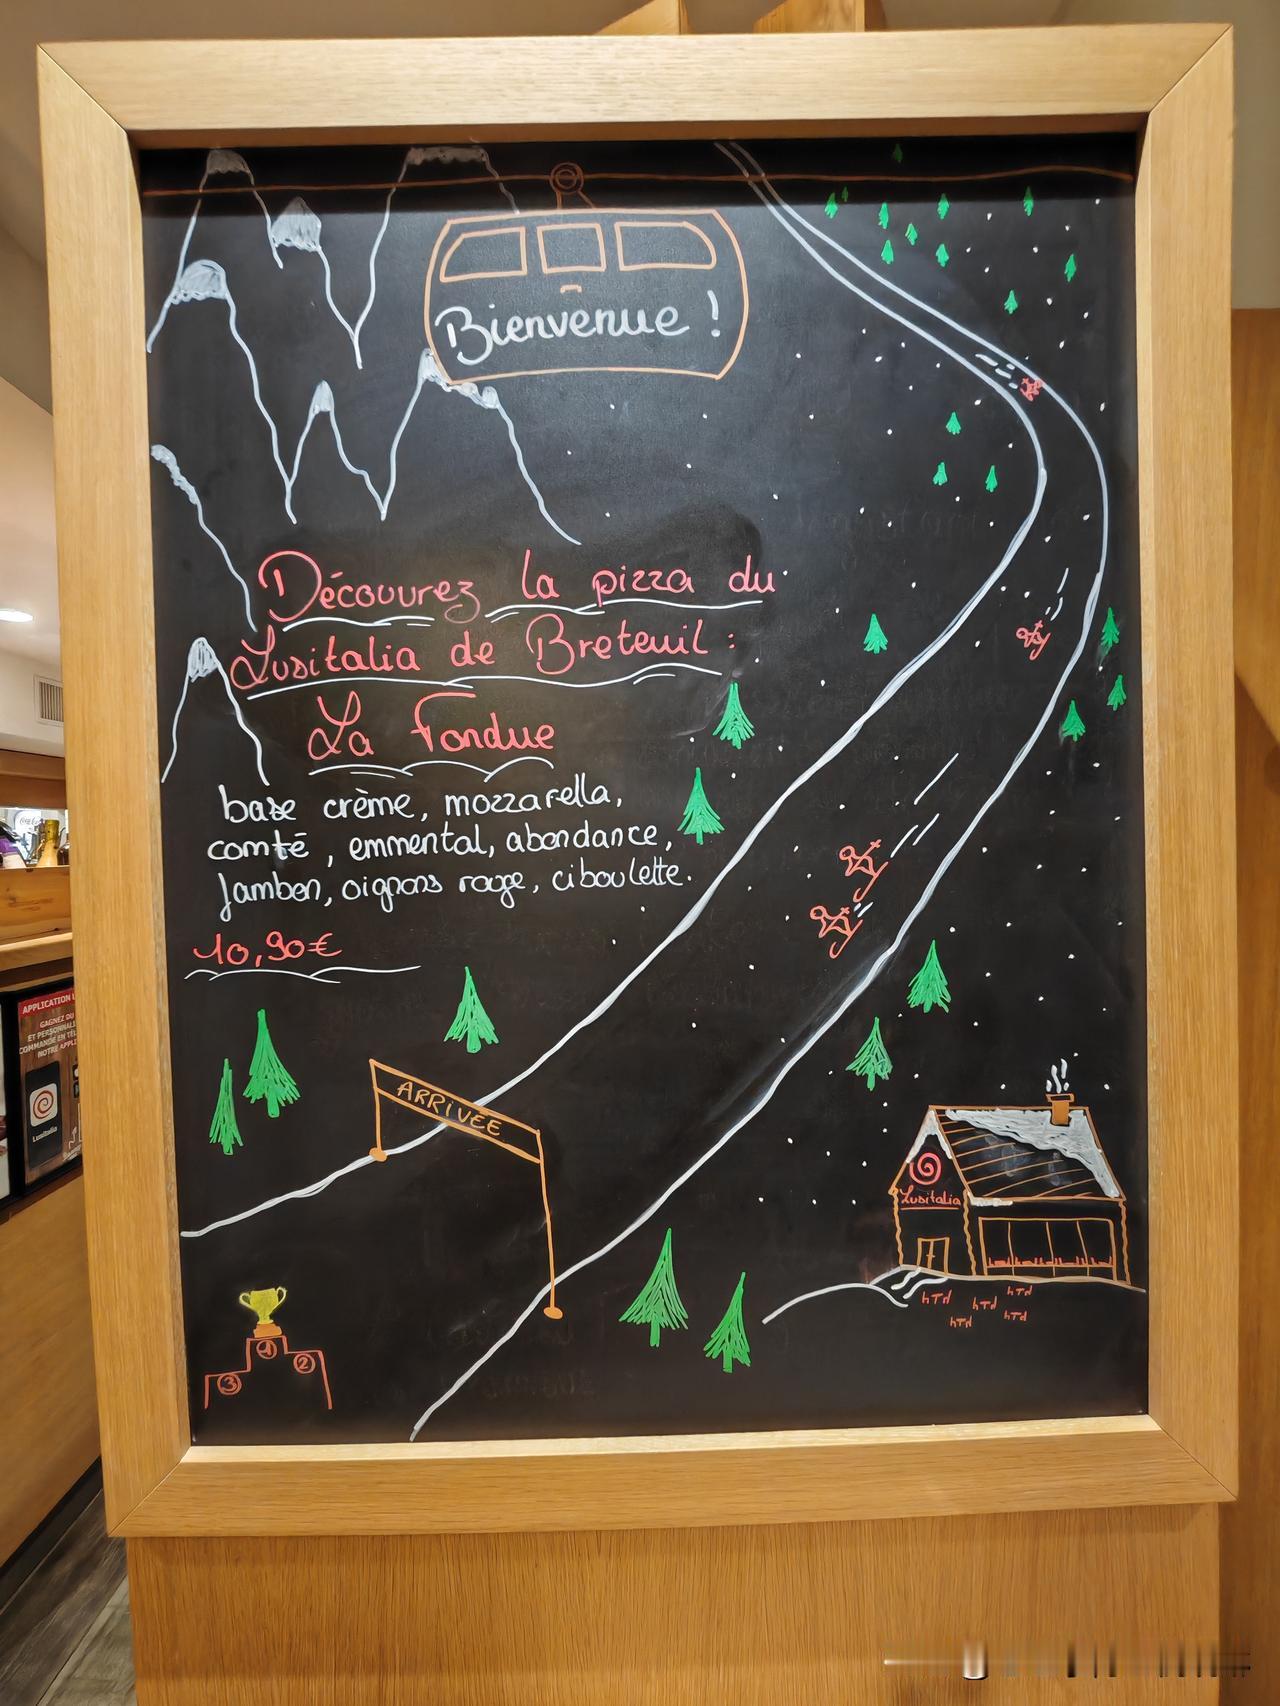 Bienvenue !
Découvrez la pizza du
Lusitalia de Breteuil :
La Fondue
base crème, mozzarella,
comté, emmental, abondance,
Jambon, oignons rouge, ciboulette.
10,90€
ARRIVÉE
Lusitalia
1
2
3
APPLICATION
GAGNEZ DU
ET PERSONNALI
COMMANDE EN
NOTRE APPLI
Lusitalia